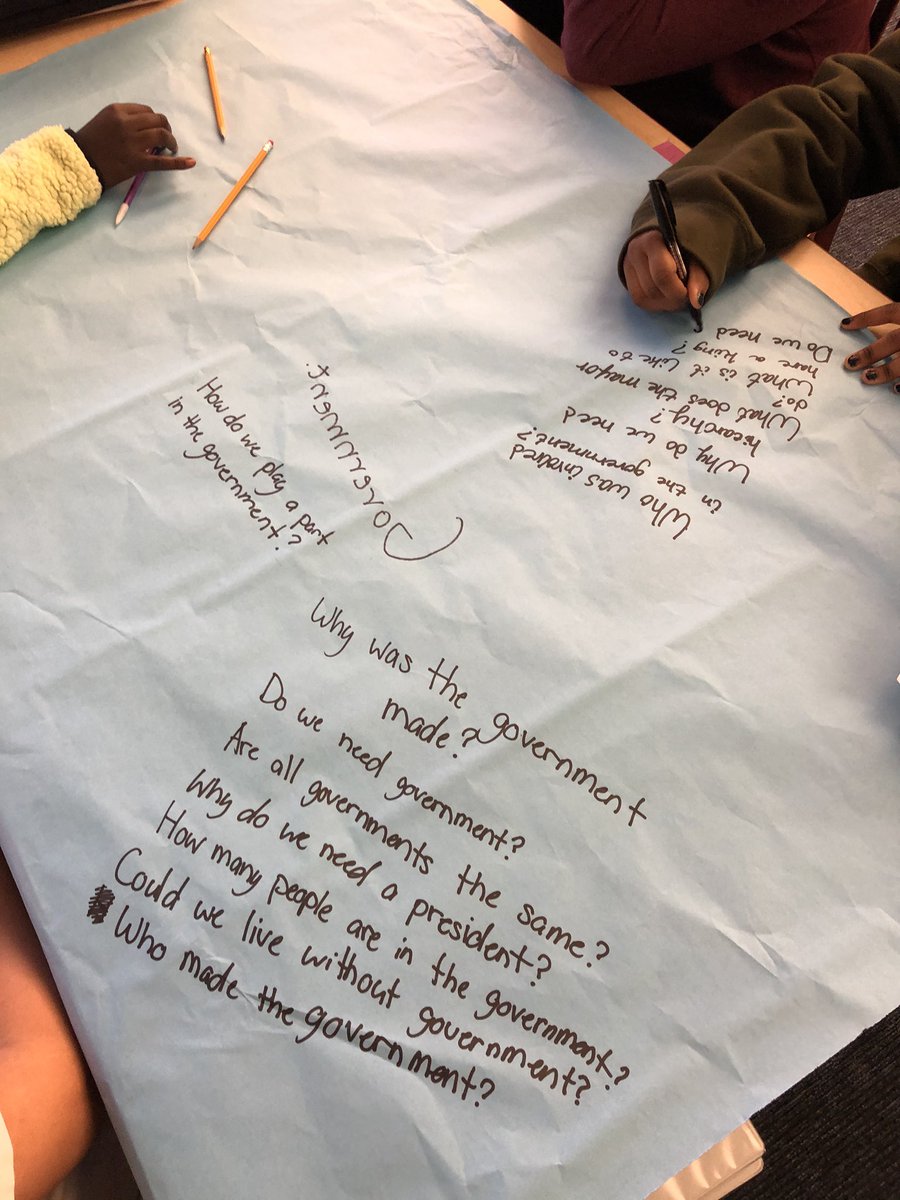 Government.
How do we play a part
in the government?
Who was involved
in the government?
Why do we need
hiearchy?
What does the mayor
do?
What is it like to
have a king?
Do we need
Why was the government
made?
Do we need government?
Are all governments the same?
Why do we need a president?
How many people are in the government?
Could we live without government?
Who made the government?